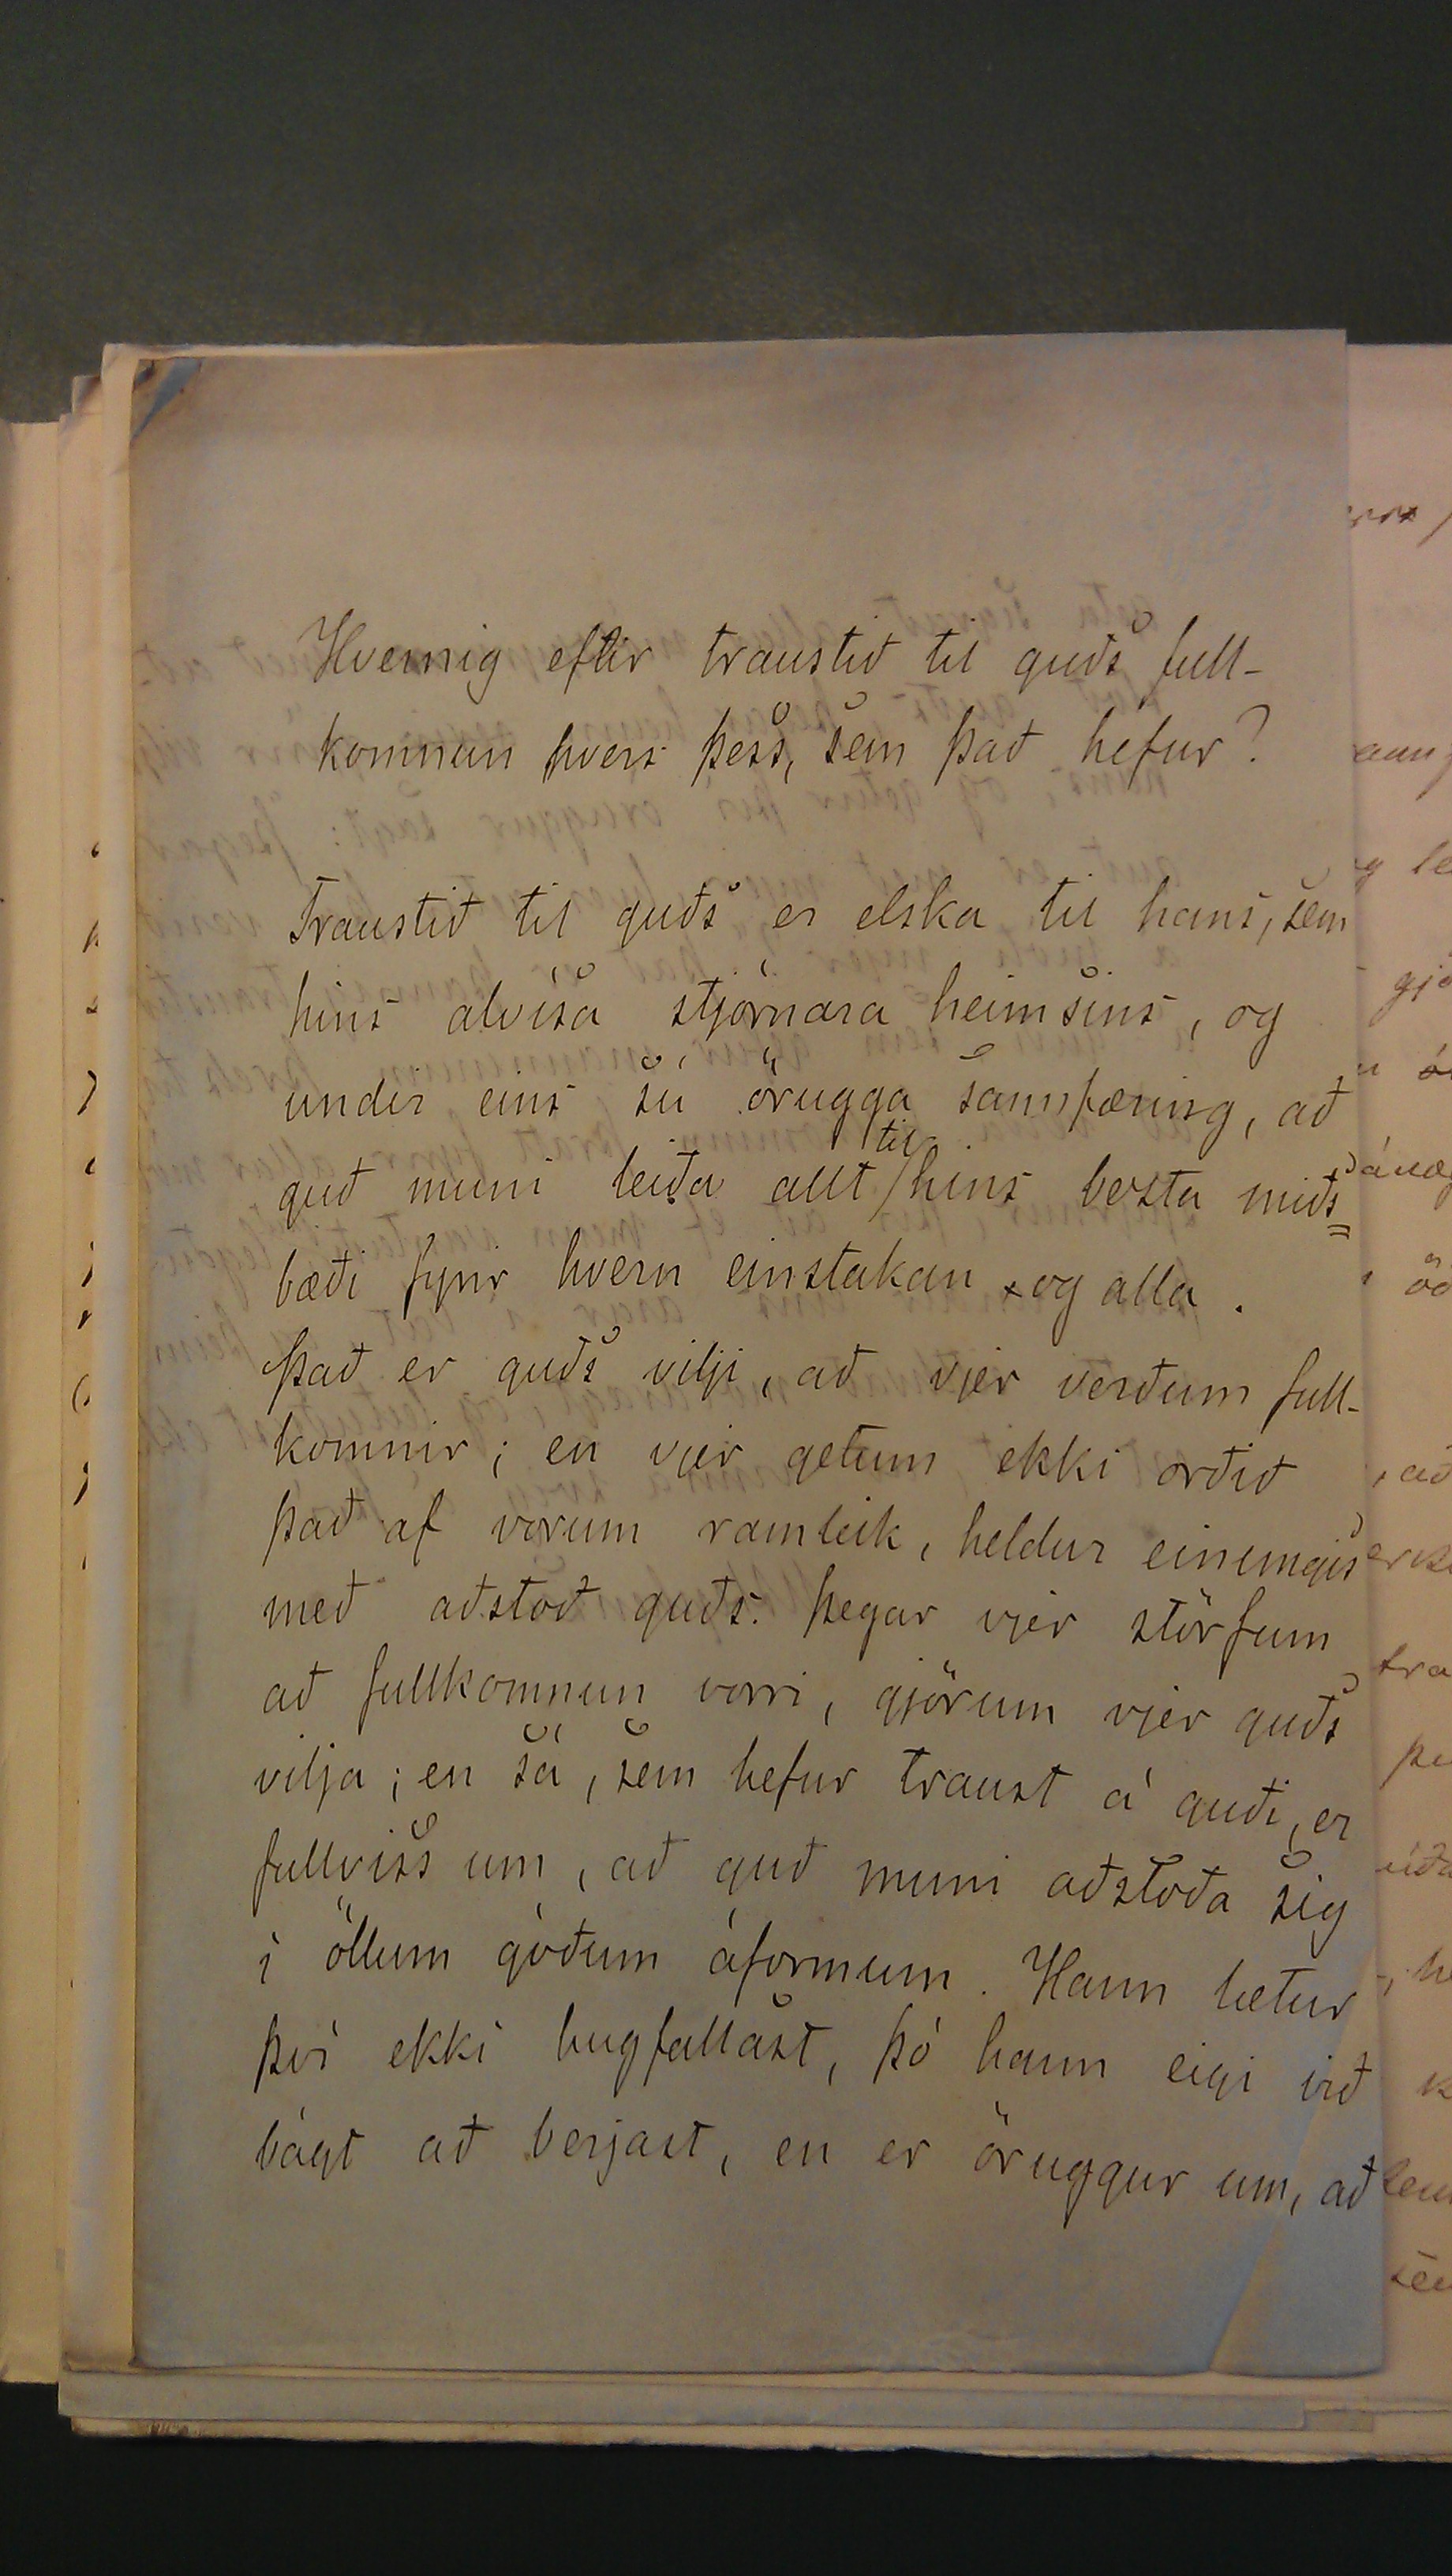 Hvernig eflir traustið til guðs full-
komnun hvers þess, sem það hefur?
Traustið til guðs er elska til hans, sem
hins alvísa stjórnara heimsins, og
undir eins sú örugga sannfæring, að
guð muni leiða allt til hins besta miðs
bæði fyrir hvern einstakan og alla.
Það er guðs vilji, að vjer verðum full-
komnir; en vjer getum ekki orðið
það af vorum ramleik, heldur einungis
með aðstoð guðs. Þegar vjer störfum
að fullkomnun vorri, gjörum vjer guðs
vilja; en sá, sem hefur traust á guði, er
fullviss um, að guð muni aðstoða sig
í öllum góðum áformum. Hann lætur
því ekki hugfallast, þó hann eigi við
bágt að berjast, en er öruggur um, að